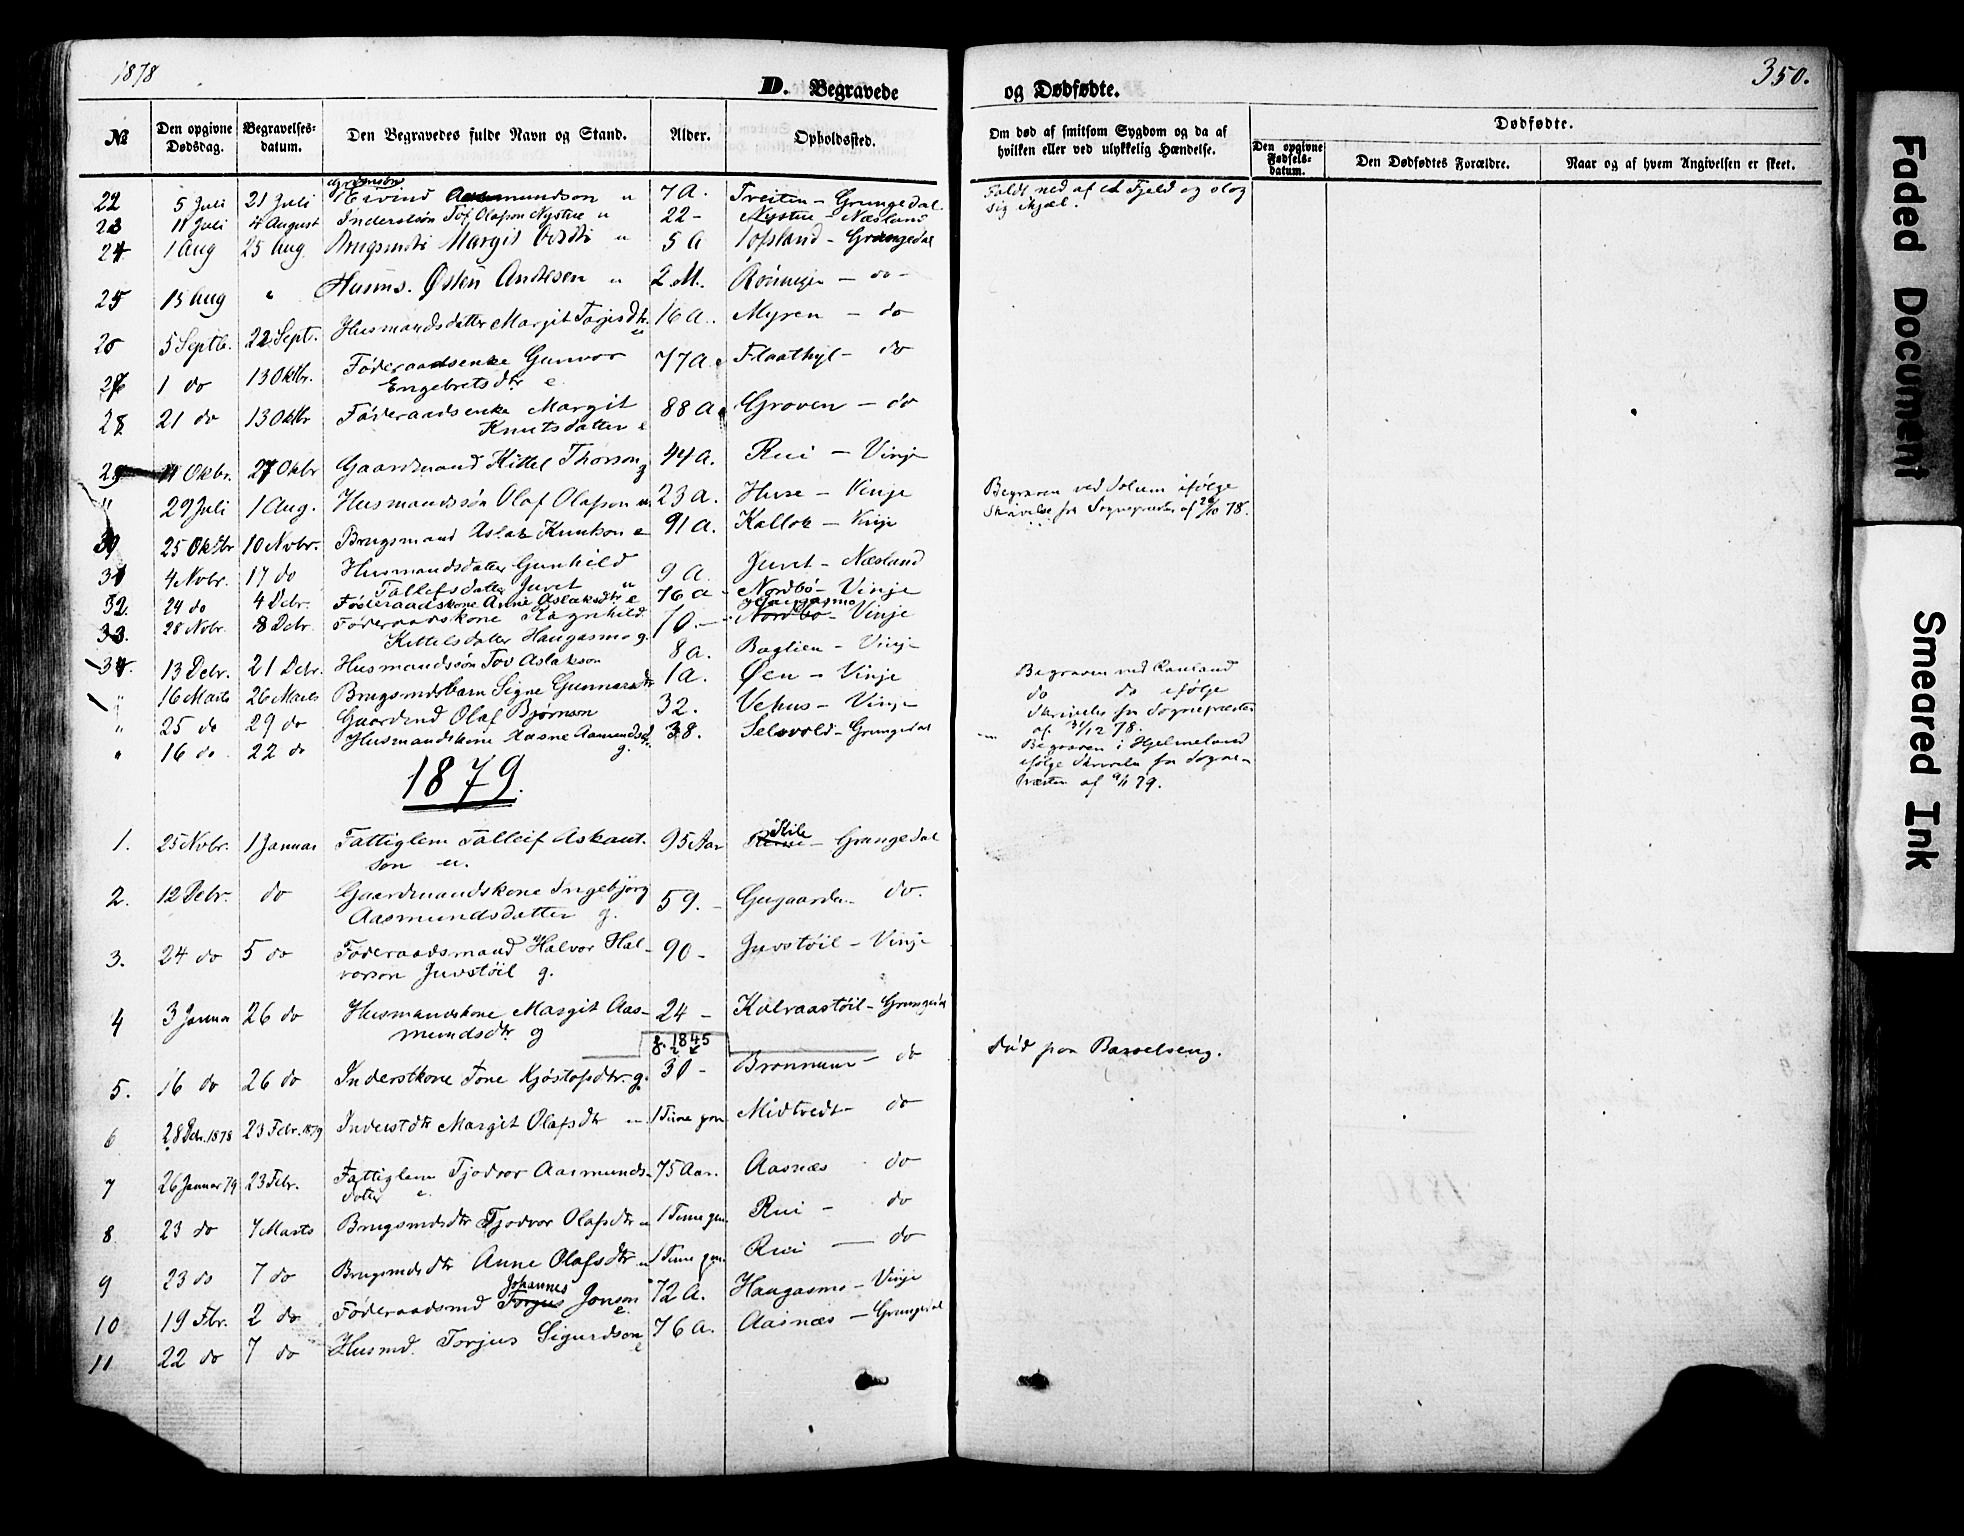 1878
D. Begravede
og Dødfødte.
350.
№
Den opgivne Dødsdag.
Begravelses-datum.
Den Begravedes fulde Navn og Stand.
Alder.
Opholdssted.
Om død af smitsom Sygdom og da af hvilken eller ved ulykkelig Hændelse.
Dødfødte.
Den opgivne Fødsels-datum.
Den Dødfødtes Forældre.
Naar og af hvem Angivelsen er skeet.
22 5 Juli 21 Juli Eivind Aasmundson u 7 A. Treiten - Grungedal Faldt ned af et Fjeld og slog
sig ihjæl.
23 11 Juli 4 August Inderstsøn Tof Olafson Nystue u 22 - Nystue - Næsland
24 1 Aug 25 Aug. Brugsmdtr Margit u 5 A Tofsland - Grungedal
25 15 Aug " Husms. Østen Andresen u 2 M. Rönningen - do -
26 5 Septb. 22 Septr. Husmandsdatter Margit Torjisdtr. u 16 A. Myren - do
27 1 do 13 Oktbr. Føderaadsenke Gunvor
Engebretsdtr e. 77 A. Flaathyl - do
28 21 do 13 Oktbr Føderaadsenke Margit
Knutsdatter e 88 A. Groven - do
29 11 Okbr. 27 Okbr Gaardmand Kittel Thorson g 44 A. Rui - Vinje
" 29 Juli 1 Aug. Husmandssøn Olaf Olafson u 23 A. Huse - Vinje Begraven ved Solum ifølge
Skrivelse fra Sognepræsten af 26/10 78.
30 25 Oktbr 10 Novbr. Brugsmand Aslak Knutson e 91 A. Kallok - Vinje
31 4 Novbr. 17 do Husmandsdatter Gunhild
Tallefsdatter Juvet u 9 A. Juvet - Næsland
32. 24 do 4 Debr. Føderaadskone Anne Aslaksdtr e 76 A - Nordbø - Vinje
33. 28 Novbr. 8 Debr Føderaadskone Ragnhild
Kittelsdatter Haugasmo g. 70. - Haugasmo
Nordbø - Vinje
34. 13 Debr. 21 Debr. Husmandssøn Tov Aslakson 8 A. Baglien - Vinje
" 16 Marts 26 Marts Brugsmdsbarn Signe Gunnarsdtr 1 A. Øen - Vinje Begraven ved Rauland
" 25 do 29 do Gaardmd Olaf Bjørnson 32. Vehus - Vinje do do ifølge
Skrivelse fra Sognepræsten
af 31/12 78.
" 16 do 22 do Husmandskone Aasne Aamundsd. g. 38. Selsvold - Grungedal Begraven i Hjelmeland
ifølge Skrivelse fra Sogne-
præsten af 9/1 79.
1879.
1. 25 Novbr. 1 Januar Fattiglem Talleif Askout-
son u. 95 Aar Kile - Grungedal
2. 12 Debr. do Gaardmandskone Ingebjørg
Aasmundsdatter g. 59. - Gugaarden - do.
3. 24 do 5 do Føderaadsmand Halvor Hal-
vorson Juvstøil g. 90 - Juvstøil - Vinje
4 3 Januar 26 do Husmandskone Margit Aas-
mundsdtr g 24 - Kolraastøil - Grungedal
f. 1845
5. 16 do 26 do Inderstkone Tone Kjøstofsdtr. g. 30 - Brunnum - do Død paa Barselseng.
6 28 Debr. 1878 23 Febr. 1879 Inderstdtr Margit Olafsdtr u 1 Time gm. Midtvedt - do
7 26 Januar 79 23 Febr. Fattiglem Tjodvor Aasmunds-
datter e. 75 Aar. Aasnæs do
8 23 do 7 Marts Brugsmdsdtr Tjodvor Olafsdtr u 1 Time gm. Rui - do
9 23 do 7 do Brugsmdsdtr Anne Olafsdtr u 1 Time gm. Rui - do
10 19 Fbr. 2 do Føderaadsmd Johannes
Torgus Jonson e 72 A. Haugasmo - Vinje
11 22 do 7 do Husmd. Torjus Sigurdson e 76 A. Aasnæs - Grungedal
Faded Document
Smeared Ink